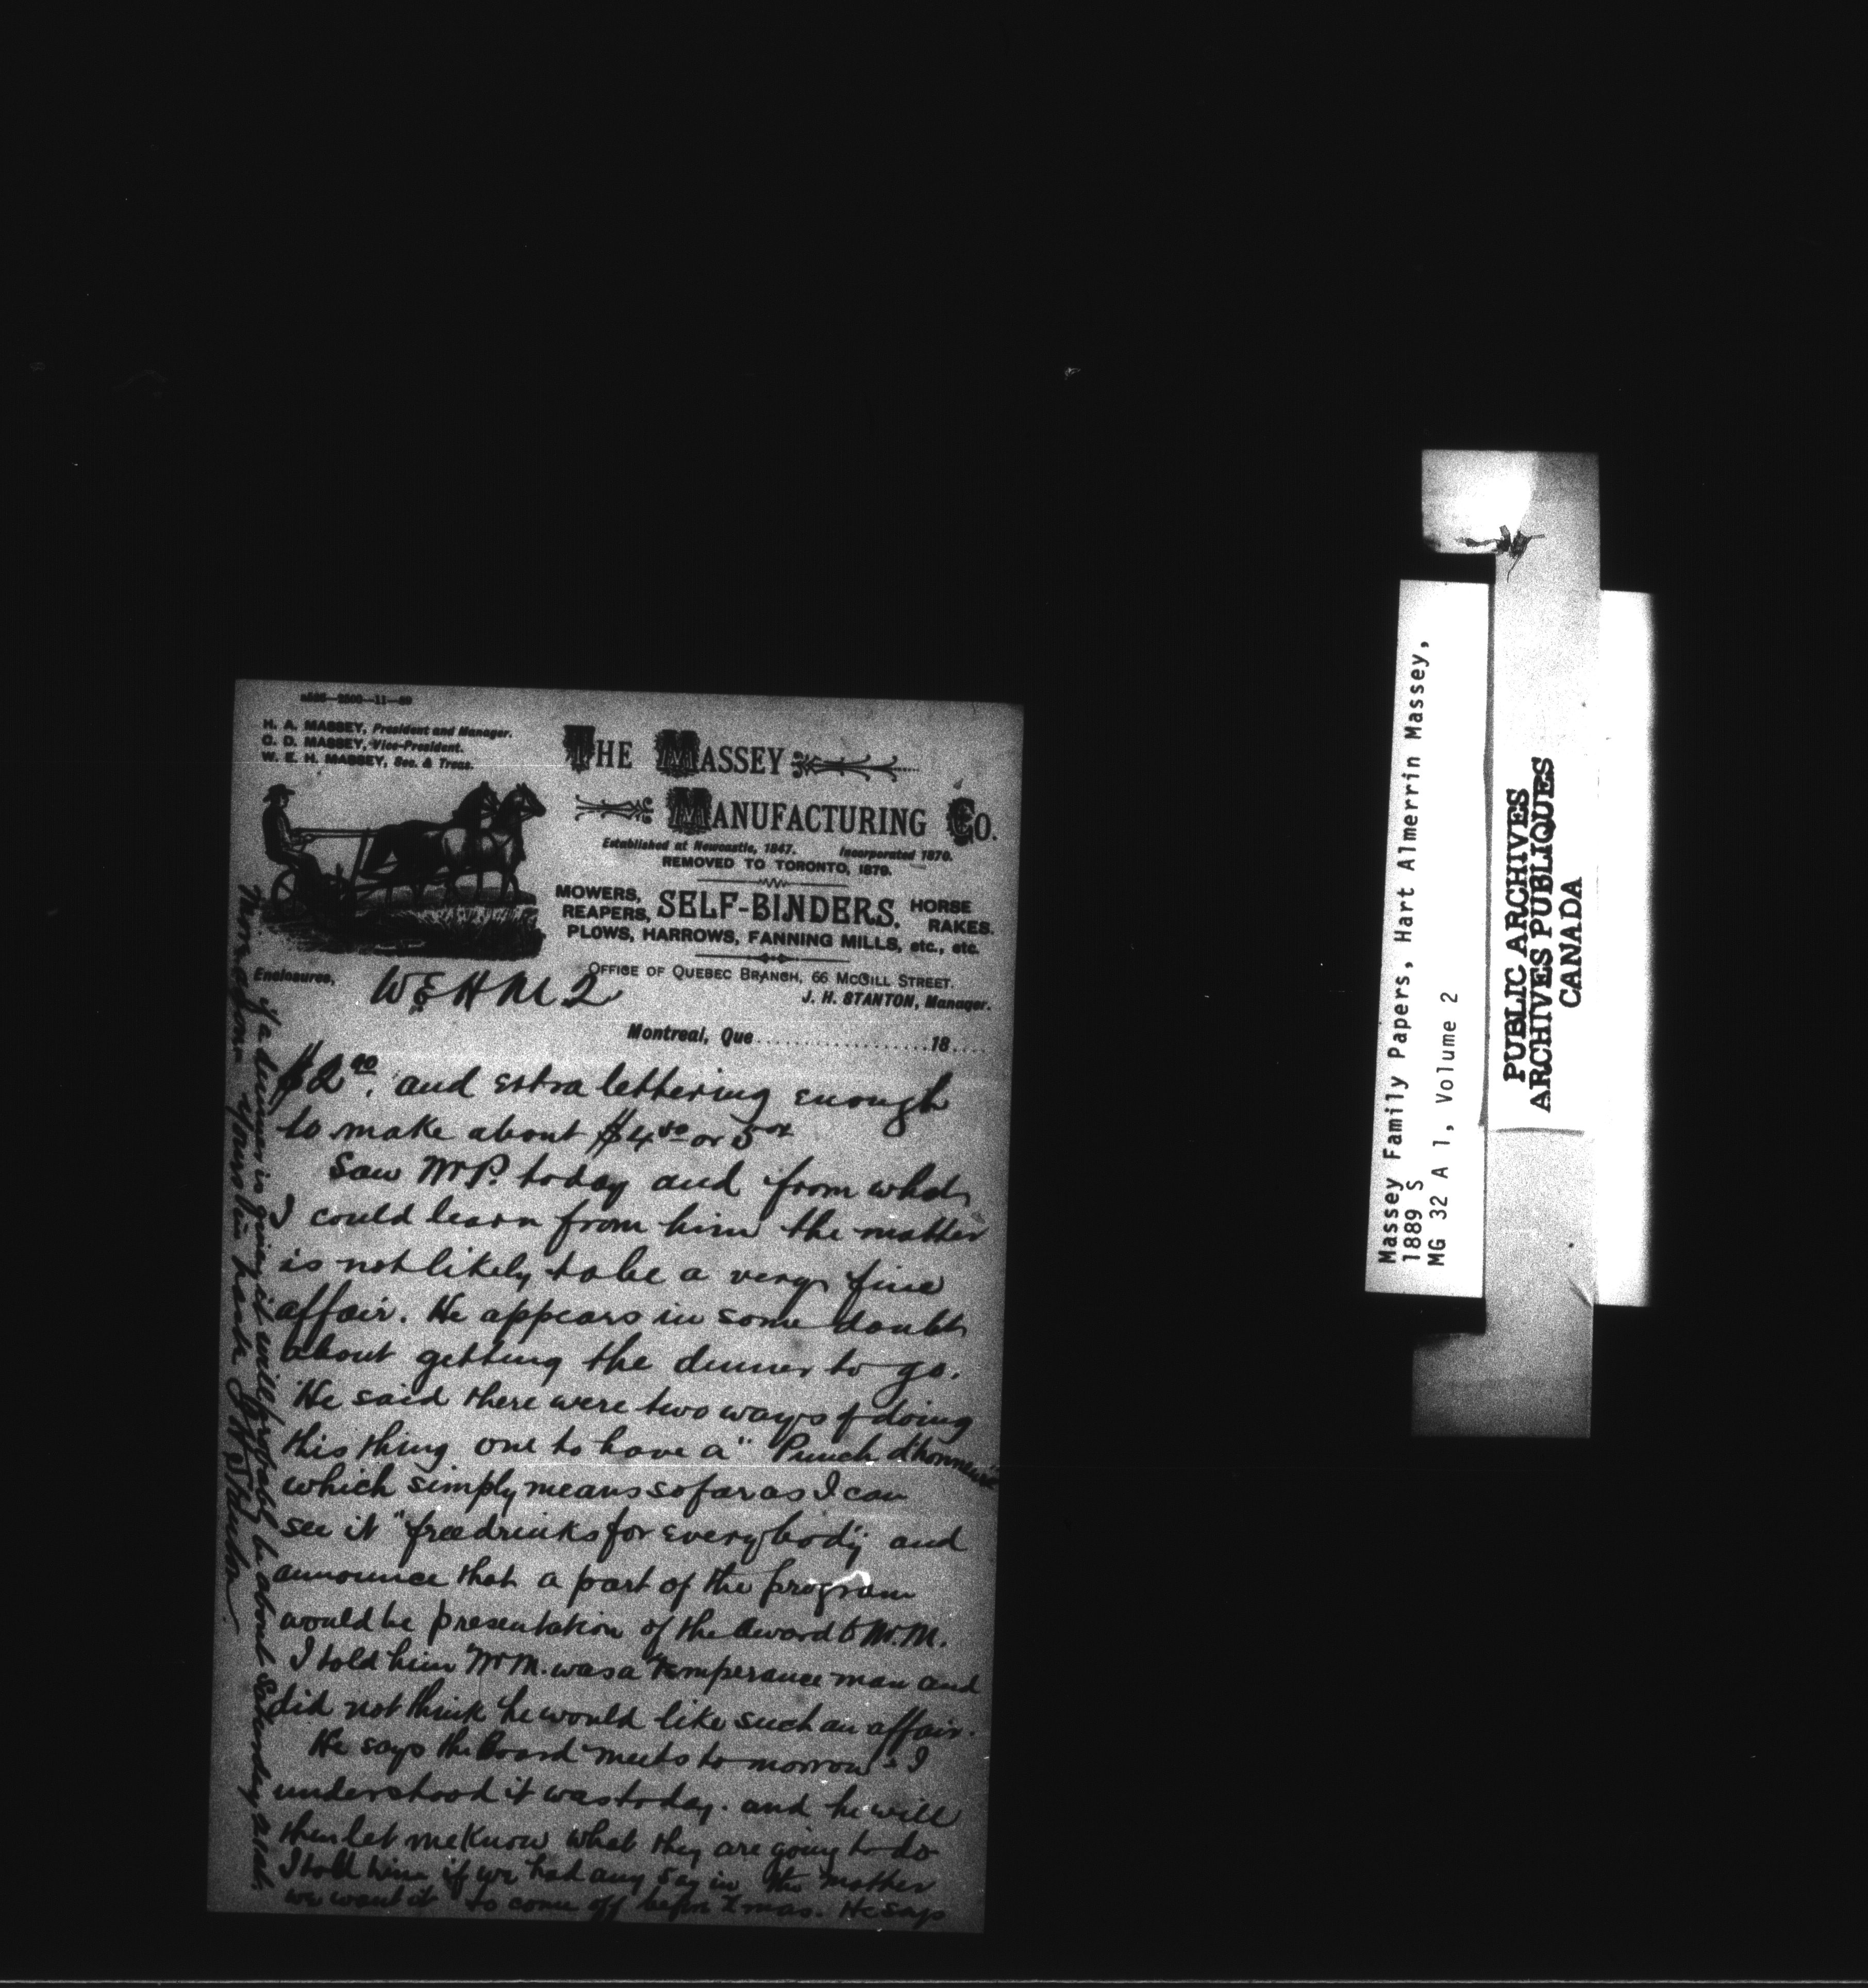 H. A. MASSEY, President and Manager.
C. D. MASSEY, Vice-President.
W. E. H. MASSEY, Sec. & Treas.
THE MASSEY
MANUFACTURING CO.
Established at Newcastle, 1847. Incorporated 1870.
REMOVED TO TORONTO, 1879.
MOWERS, REAPERS, SELF-BINDERS, HORSE RAKES.
PLOWS, HARROWS, FANNING MILLS, etc., etc.
OFFICE OF QUEBEC BRANCH, 66 MCGILL STREET.
J. H. STANTON, Manager.
Enclosures,
W E H M 2
Montreal, Que....................18....
$2 00. and extra lettering enough
to make about $4 50 or 5 00
Saw Mr P. today and from what
I could learn from him the matter
is not likely to be a very fine
affair. He appears in some doubt
about getting the dinner to go.
He said there were two ways of doing
this thing one to have a "Punch d'honneur"
which simply means so far as I can
see it "free drinks for everybody" and
announce that a part of the program
would be presentation of the award to Mr. M.
I told him Mr M. was a Temperance man and
did not think he would like such an affair.
He says the Board meets to morrow - I
understood it was today. and he will
then let me know what they are going to do
I told him if we had any say in the matter
we want it to come off before Xmas. He says
if a dinner is given it will probably be about Saturday week.
yours in haste J H Stanton
Massey Family Papers, Hart Almerrin Massey,
1889 S
MG 32 A 1, Volume 2
PUBLIC ARCHIVES
ARCHIVES PUBLIQUES
CANADA